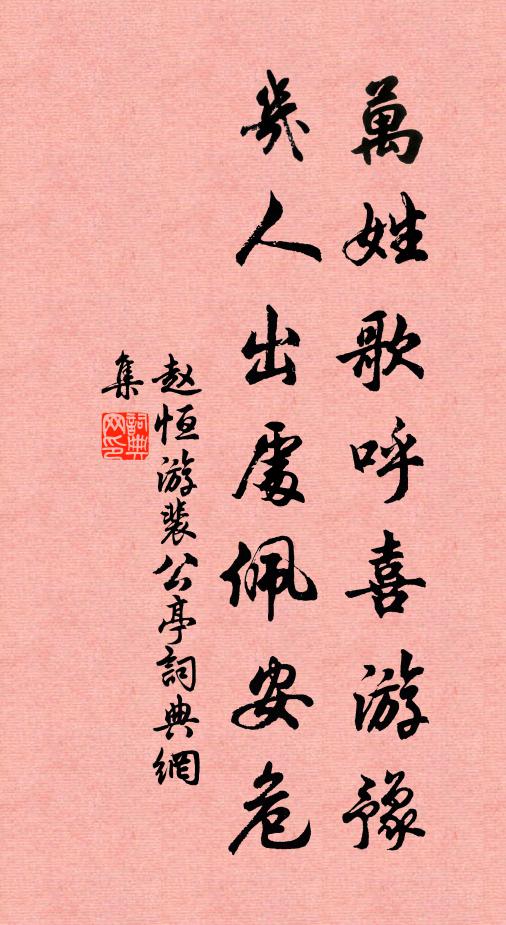 萬姓歌呼喜游豫
幾人出處佩安危
赵恒游裴公亭詞典網
集
詞典網印